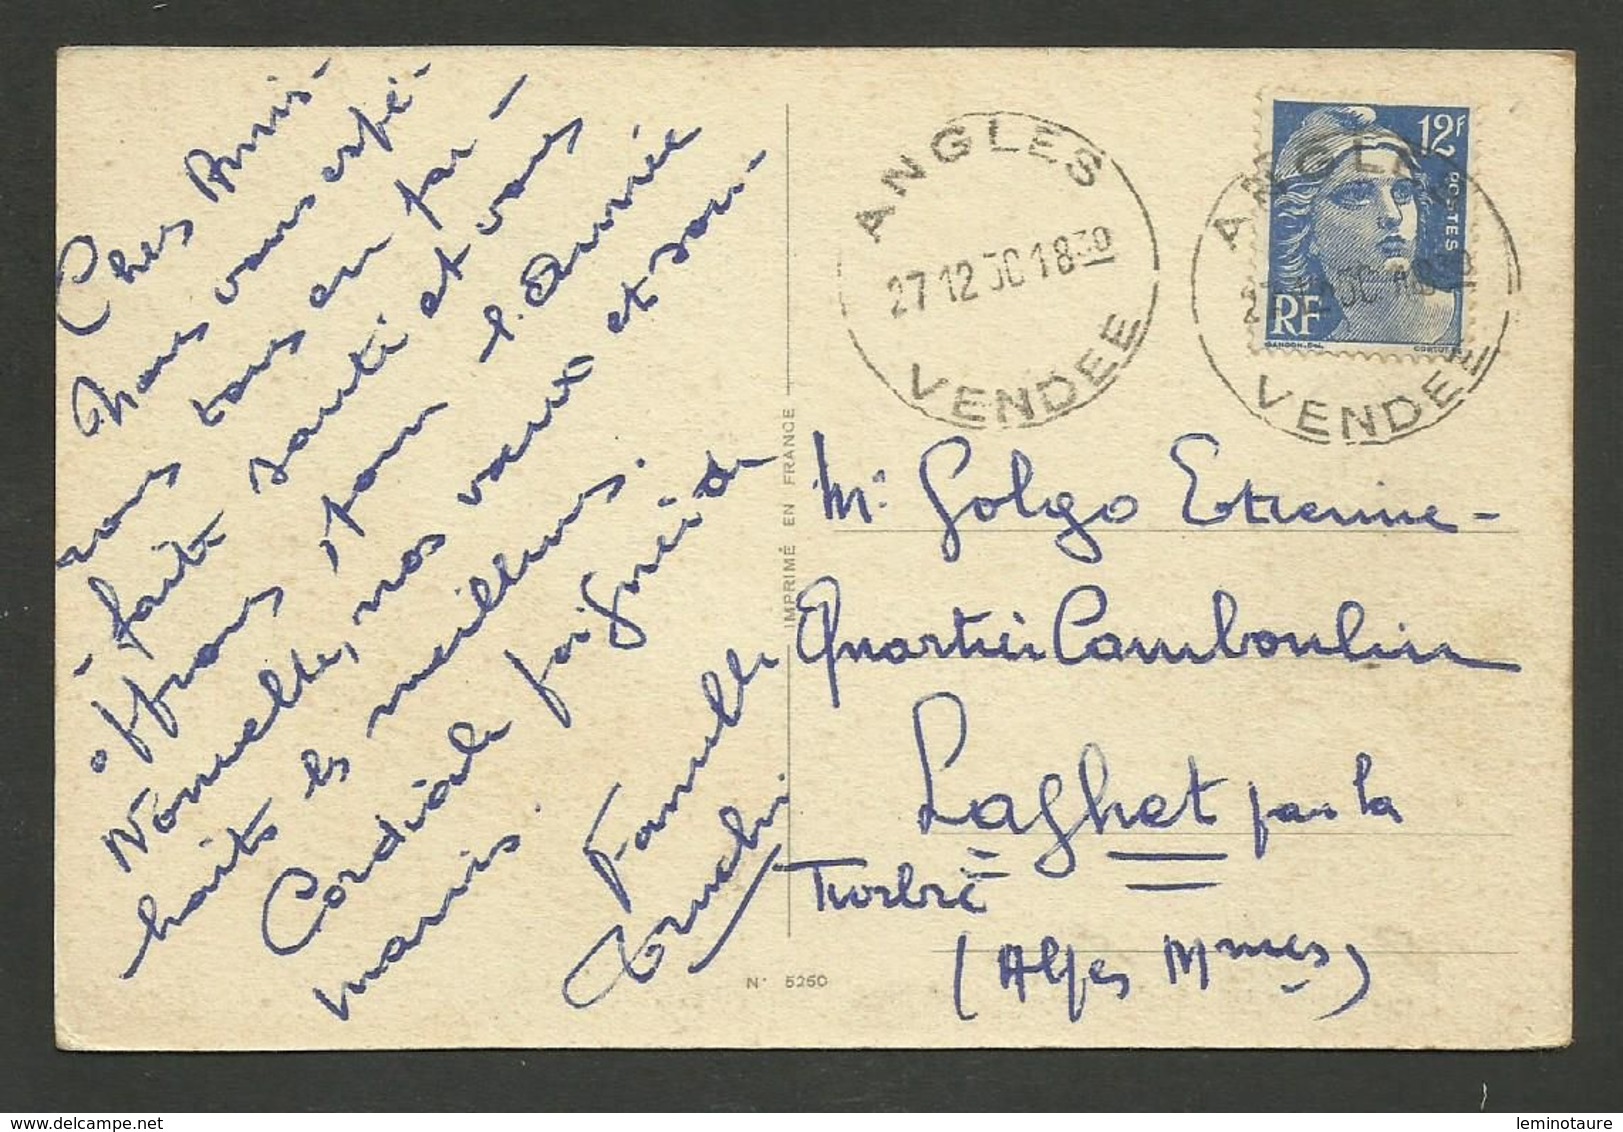 Chers Amis -
Nous vous espé -
rons tous en par -
- faite santé et vous
offrons, pour l'Année
Nouvelle, nos vœux et sou -
haits les meilleurs.
Cordiale poignée de
mains.
Famille
ANGLES
27 12 50 18 30
VENDEE
ANGLES
VENDEE
12F
POSTES
RF
GANDON. DEL.
IMPRIMÉ EN FRANCE
Mr Golgo Etienne -
Quartier Camboulin
Laghet par la
Turbie
(Alpes Mmes)
N° 5250
leminotaure